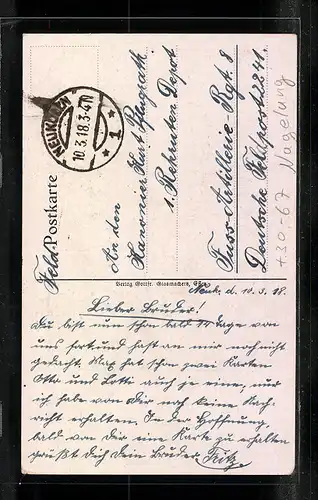 Feld-Postkarte
NEUKÖLLN
10.3.18.3-4N
* 1 *
An den
Kanonier Kurt Pflugrath
1. Rekruten Depot
Fuss-Artillerie-Rgt. 8
Deutsche Feldpost 2241.
Nagelung
Verlag Gottfr.
Neuk. d. 10.3.18.
Lieber Bruder!
Du bist nun schon bald 14 Tage von
uns fort und hast an mir noch nicht
gedacht. Max hat schon zwei Karten
Otto und Lotti auch je eine, nur
ich habe von Dir noch keine Nach-
richt erhalten. In der Hoffnung,
bald von Dir eine Karte zu erhalten
grüßt Dich Dein Bruder Fritz